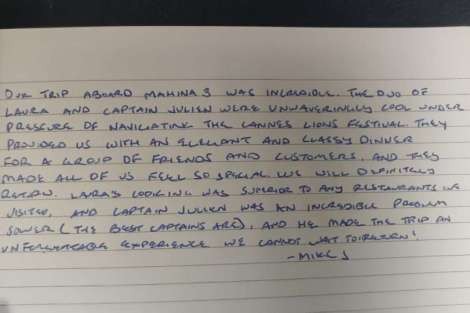 OUR TRIP ABOARD MAHINA 3 WAS INCREDIBLE. THE DUO OF
LAURA AND CAPTAIN JULIEN WERE UNWAVERINGLY COOL UNDER
PRESSURE OF NAVIGATING THE CANNES LIONS FESTIVAL. THEY
PROVIDED US WITH AN ELEGANT AND CLASSY DINNER
FOR A GROUP OF FRIENDS AND CUSTOMERS, AND THEY
MADE ALL OF US FEEL SO SPECIAL. WE WILL DEFINITELY
RETURN. LAURA'S COOKING WAS SUPERIOR TO ANY RESTAURANTS WE
VISITED, AND CAPTAIN JULIEN WAS AN INCREDIBLE PROBLEM
SOLVER (THE BEST CAPTAINS ARE), AND HE MADE THE TRIP AN
UNFORGETTABLE EXPERIENCE WE CANNOT WAIT TO RETURN!
- MIKE J